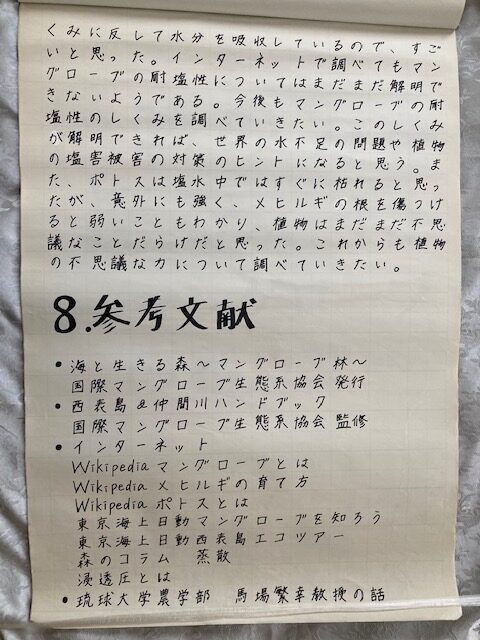 くみに反して水分を吸収しているので、すご
いと思った。インターネットで調べてもマン
グローブの耐塩性についてはまだまだ解明で
きないようである。今後もマングローブの耐
塩性のしくみを調べていきたい。このしくみ
が解明できれば、世界の水不足の問題や植物
の塩害被害の対策のヒントになると思う。ま
た、ポトスは塩水中ではすぐに枯れると思っ
たが、意外にも強く、メヒルギの根を傷つけ
ると弱いこともわかり、植物はまだまだ不思
議なことだらけだと思った。これからも植物
の不思議な力について調べていきたい。
8.参考文献
●海と生きる森〜マングローブ林〜
国際マングローブ生態系協会 発行
●西表島&仲間川ハンドブック
国際マングローブ生態系協会 監修
●インターネット
Wikipedia マングローブとは
Wikipedia メヒルギの育て方
Wikipedia ポトスとは
東京海上日動マングローブを知ろう
東京海上日動西表島エコツアー
森のコラム 蒸散
浸透圧とは
●琉球大学農学部 馬場繁幸教授の話